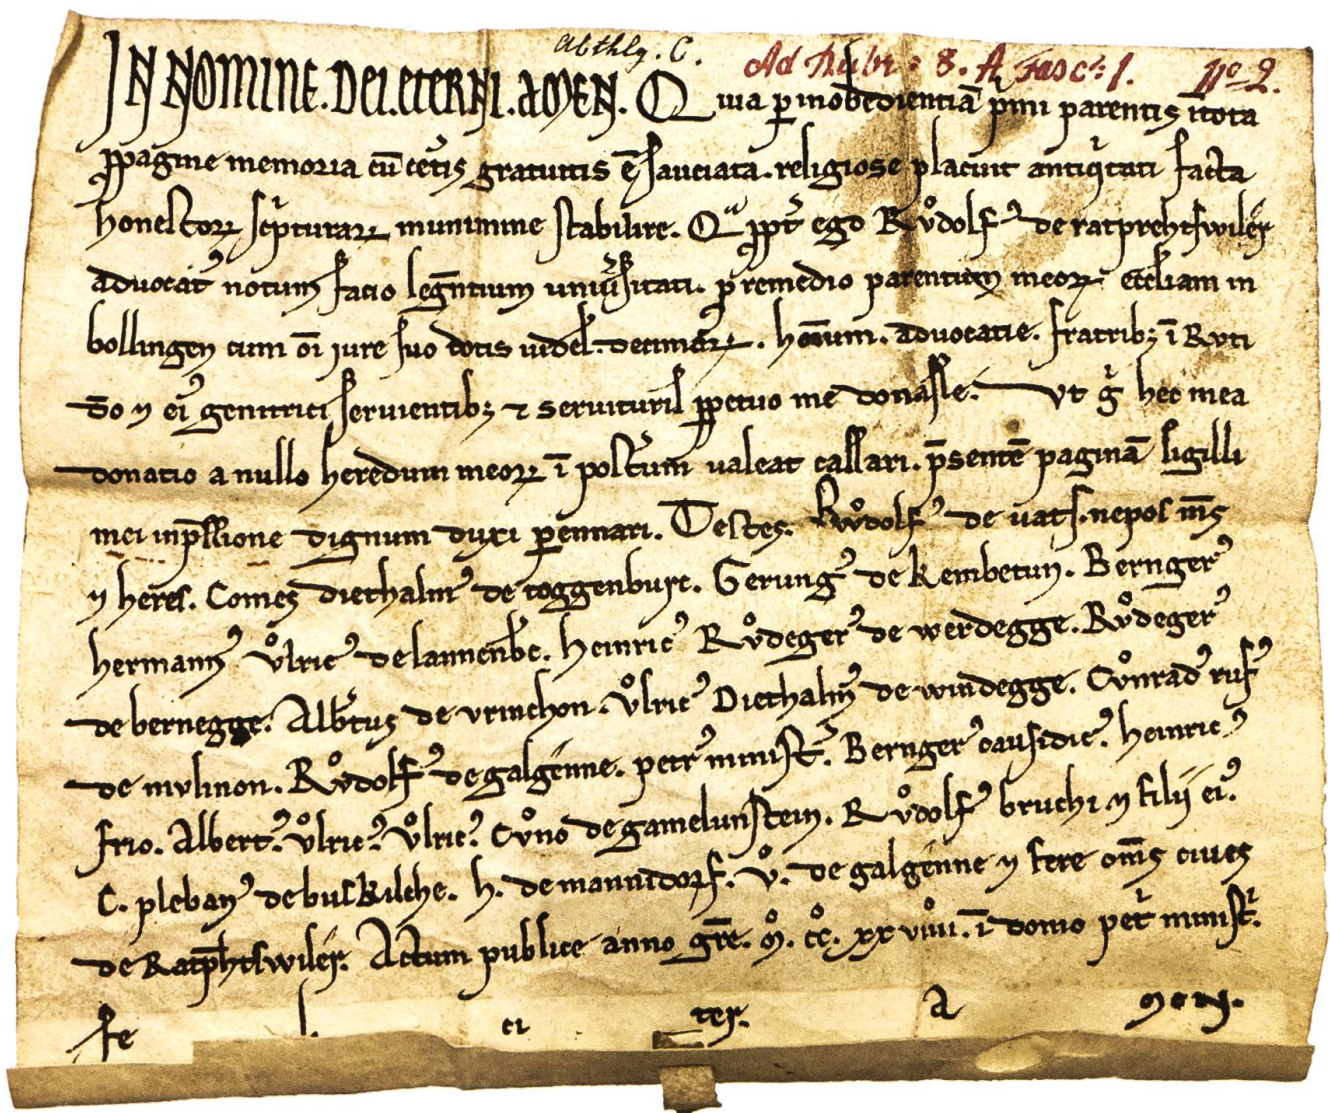 Abthlg. C.
Ad Rubr: 8. A Fasc: 1. No 2.
IN NOMINE. DEI. ETERNI. AMEN. Quia p̱ inobedientiā p̄mi parentis ī tota
ꝓpagine memoria cū cet̄is gratuitis ē sauciata. religiose placuit antiqͥtati facta
honestoꝝ sc̄pturaꝝ munimine stabilire. Qᵃ ꝓpt̄ ego Rvͦdolfꝰ de ratprehtswiler̄
aduocatꝰ notum facio legn̄tium uniuͥsitati. ꝓ remedio parentum meoꝝ eccliam in
bollingen cum oī jure suo dotis uidel. decimarꝝ. hom̄inum. aduocatie. fratribꝫ ī Rvti
dō ⁊ eiꝰ genitrici seruientibꝫ ⁊ seruituris ꝑpetuo me donasse. Vt gͥ hec mea
donatio a nullo heredum meoꝝ ī post̄um ualeat cassari. p̄sentē paginā sigilli
mei inp̄ssione dignum duxi ꝑennari. Testes. Rvͦdolfꝰ de uats. nepos m̄s
⁊ heres. Comes diethalmꝰ de toggenburc. Gerungꝰ de kembetun. Berngerꝰ
hermannꝰ vͦlricꝰ de lannenb̄c. Heinricꝰ Rvͦdegerꝰ de werdegge. Rvͦdegerꝰ
de bernegge. Alb̄tus de vrinchon. vͦlricꝰ Diethalmꝰ de windegge. Cvͦnradꝰ rufꝰ
de mvlinon. Rvͦdolfꝰ de galgenne. petrꝰ minist̄. Berngerꝰ causidicꝰ. heinricꝰ
frio. Albertꝰ. vͦlricꝰ. vͦlricꝰ. Cvͦno de gamelunstein. Rvͦdolfꝰ bruchi ⁊ filij eiꝰ.
C. plebanꝰ de buskilche. h. de mannidorf. vͦ. de galgenne ⁊ fere om̄s ciues
de Ratp̄htswiler. Actum publice anno gr̄e. mͦ. ccͦ. xx viiijͦ. ī domo pet̄ minist̄.
fe l. ci ter. A men.